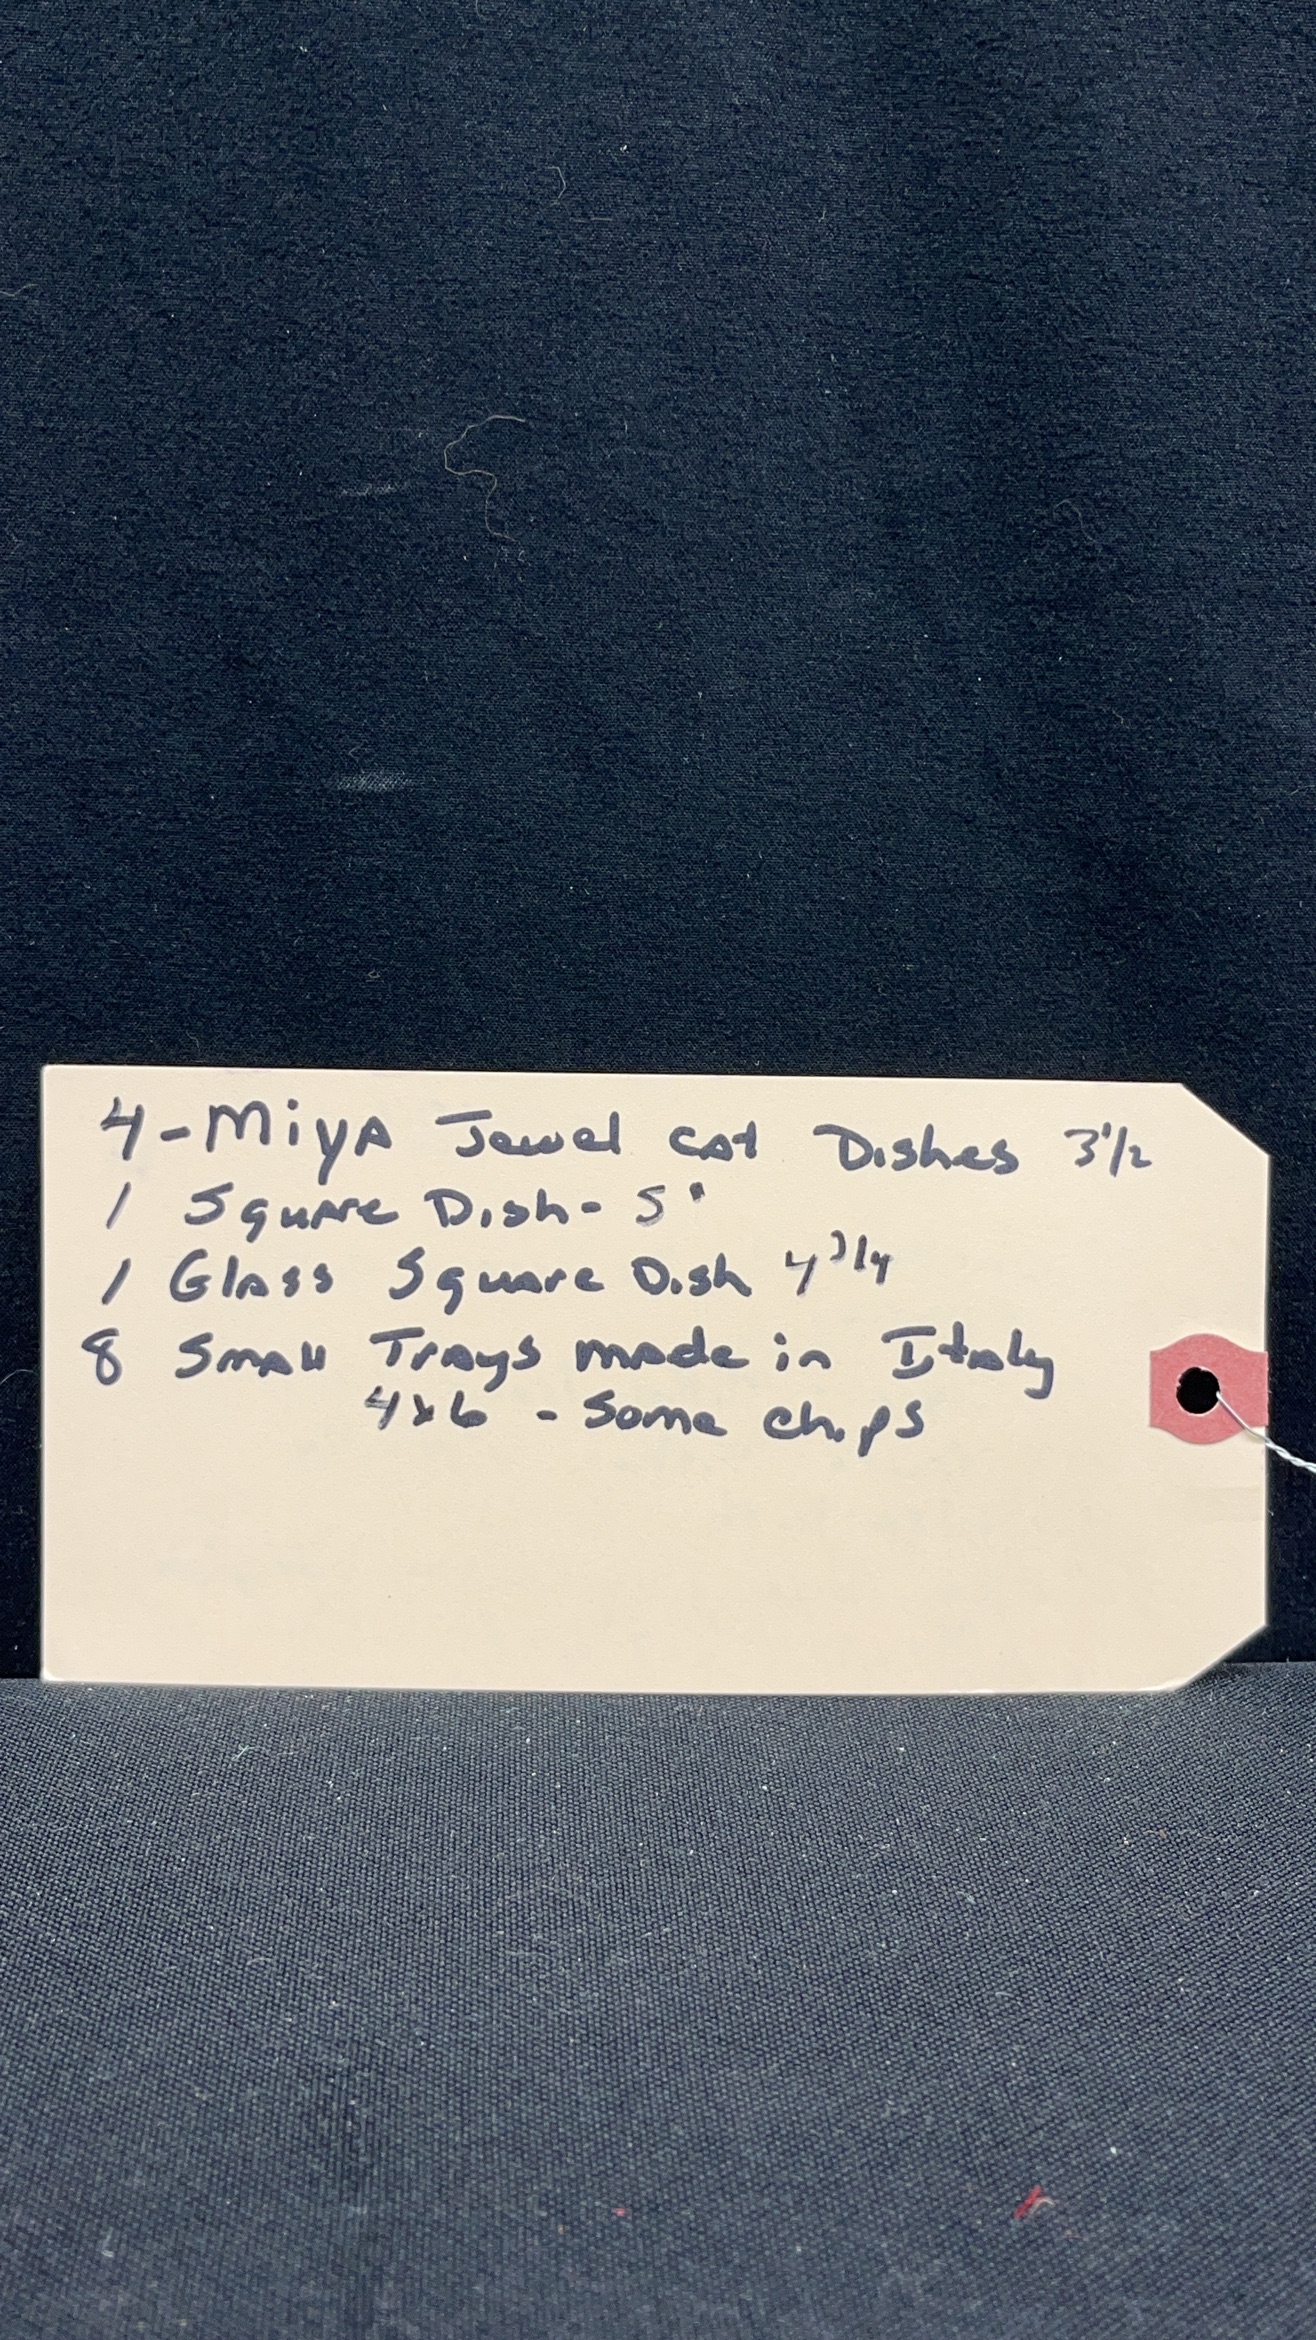 4-Miya Jewel Cat Dishes 3 1/2
1 Square Dish- 5"
1 Glass Square Dish 4 3/4
8 Small Trays made in Italy
4x6 - Some chips